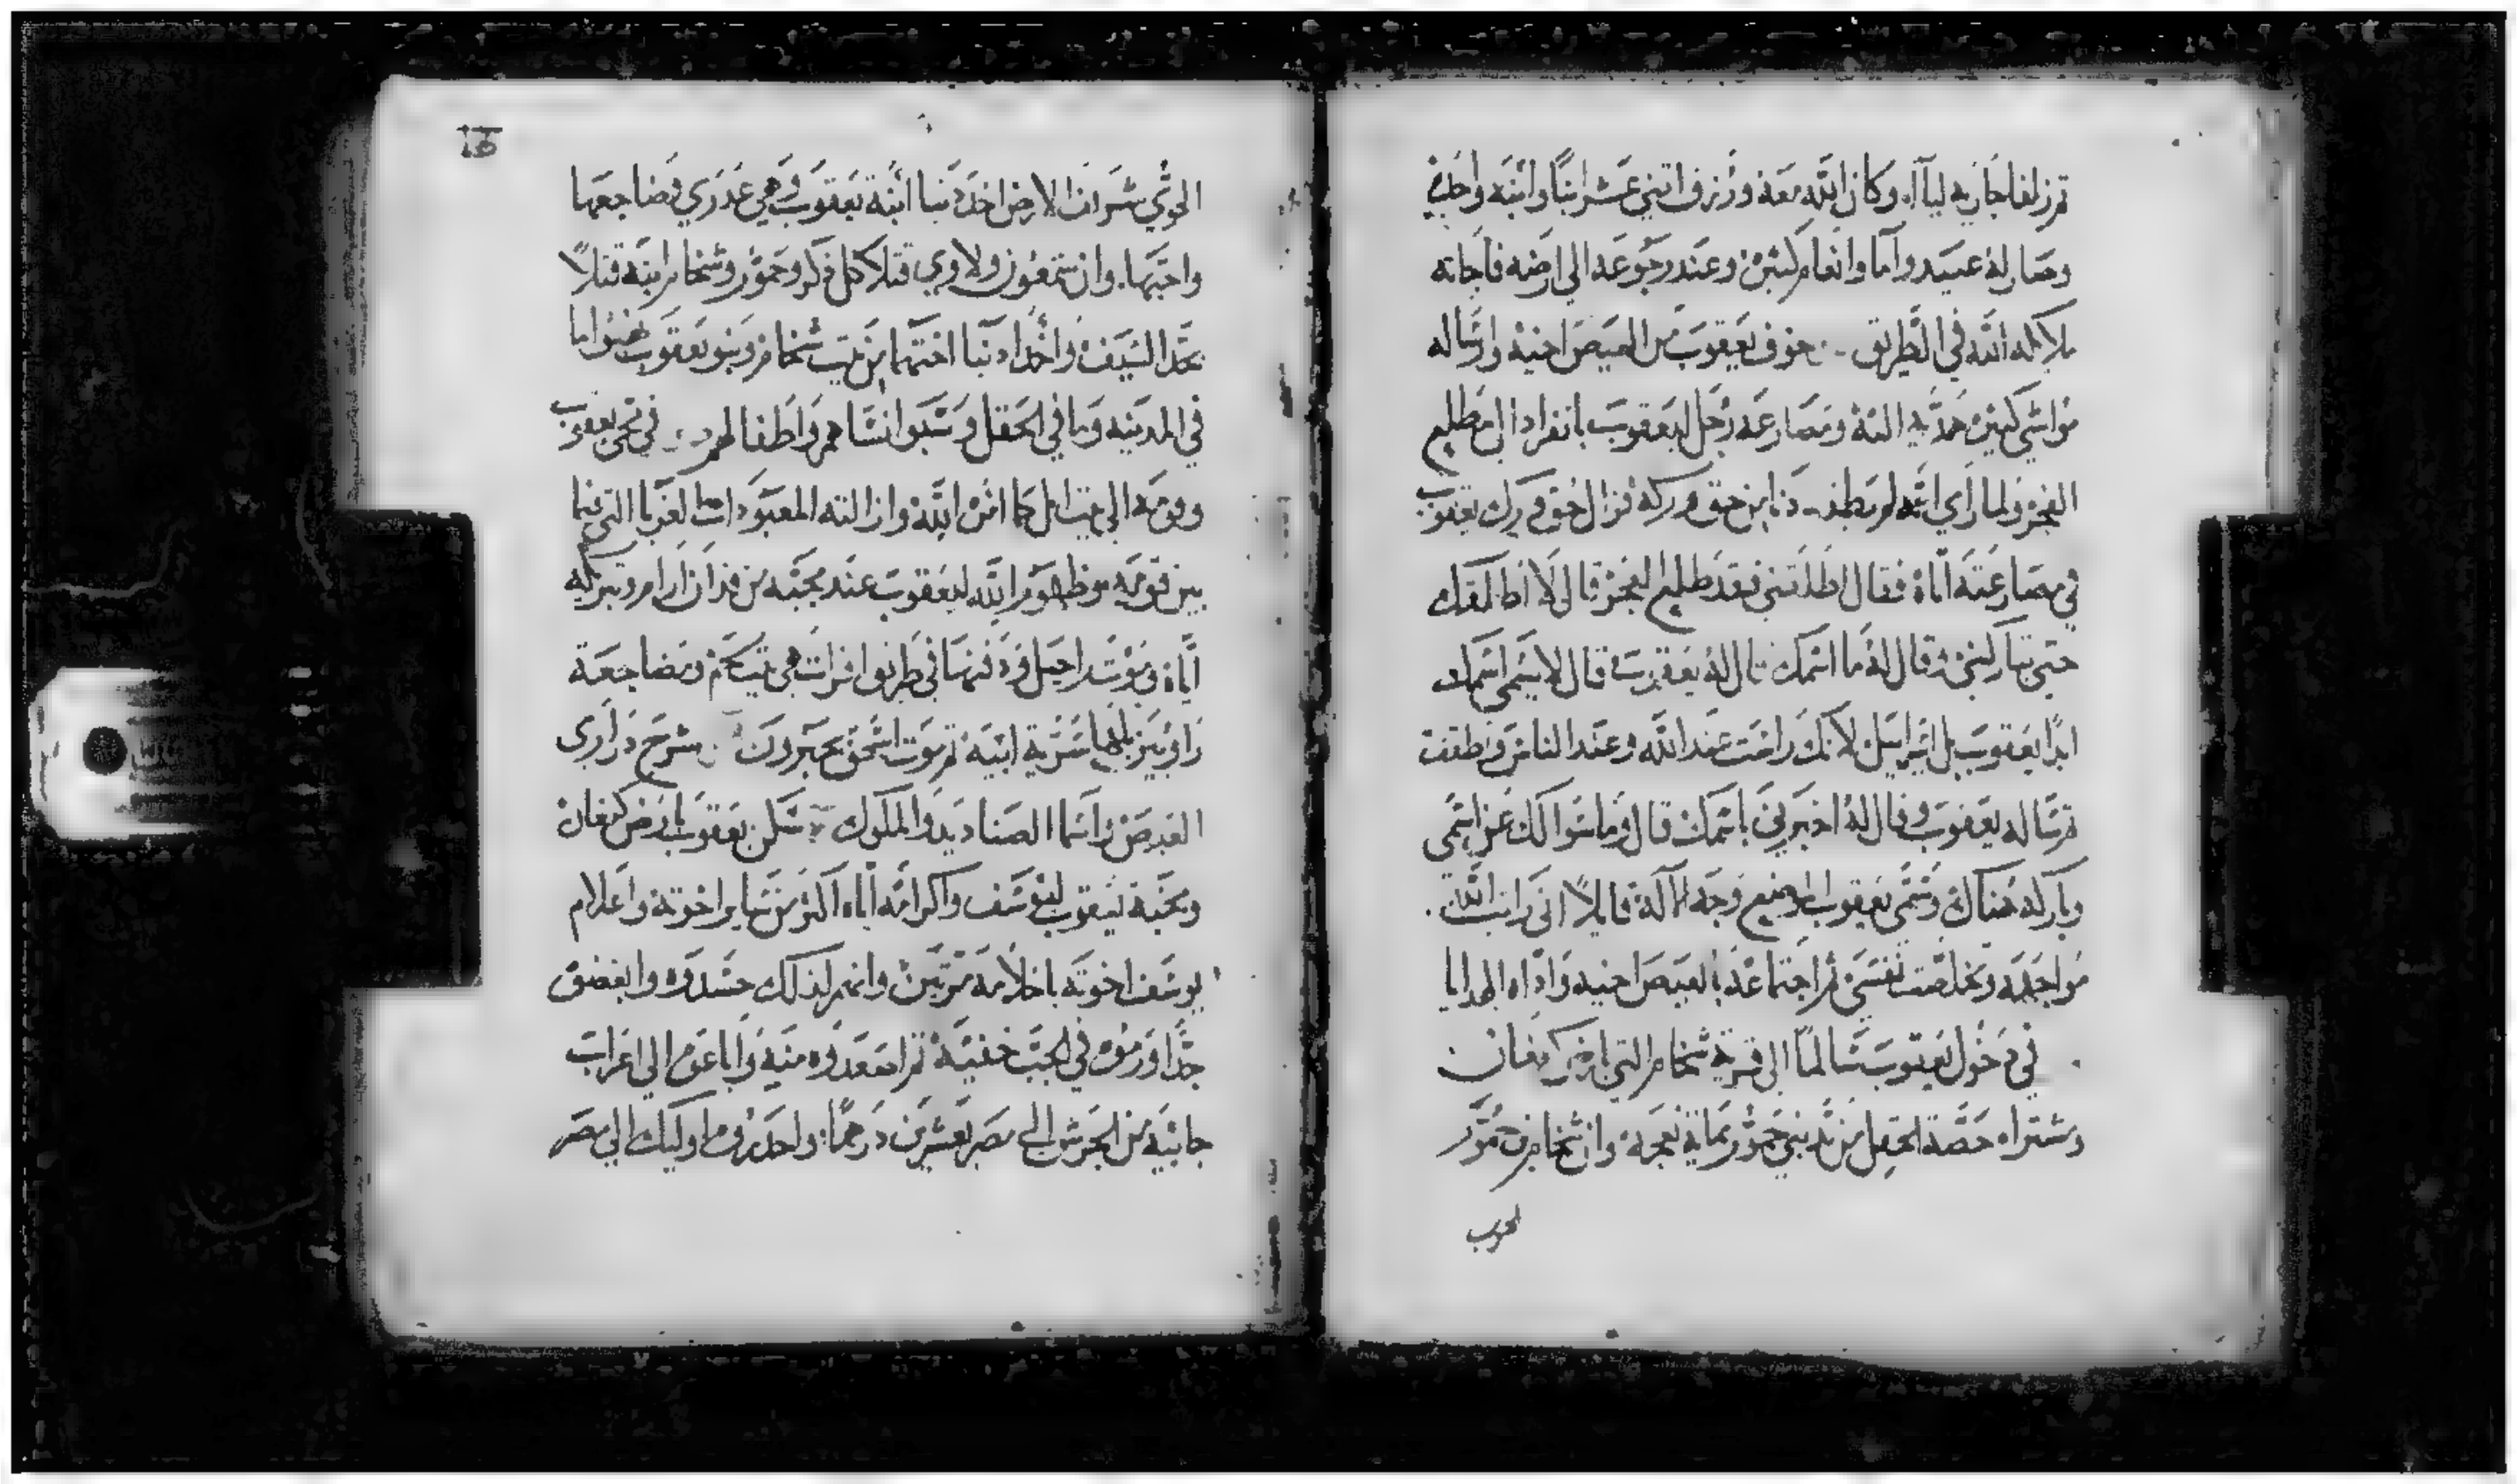 ثم زلفا جاريه ليآا. وكان الله معه ورزق اتني عشر ابنًا وابنه واحده
وصار له عبيد واما وانعام كثيره وعند رجوعه الي ارضه فاجاته
ملايكه الله في الطريق خوف يعقوب من العيص اخيه وارساله
مواشي كثيره هديه اليه ومصارعه رجل ليعقوب بانفراد الي مطلع
الفجر ولما راي انه لم يطقه دنا من حق وركه فزال حق ورك يعقوب
في مصارعته اياه فقال اطلقني فقد طلع الفجر قال لا اطلقك
حتي تباركني وقال له ما اسمك قال له يعقوب قال لا يسمي اسمك
ابدًا يعقوب بل اسراييل لانك راست عند الله وعند الناس وطقت
ثم ساله يعقوب وقال له اخبرني باسمك قال وما سوالك عن اسمي
وباركه هناك وسمي يعقوب الموضع وجه الاله قايلاً اني رايت الله
مواجهه وتخلصت نفسي ثم اجتماعه بالعيص اخيه واداه الهدايا
في دخول يعقوب سالمًا الي قرية شخام التي بارض كنعان
وشتراه حصة الحقل من يد بني حمور بماية نعجه وان شخام بن حمور
الحوي
13
الحوي شريف الارض اخذ دنيا ابنة يعقوب وهي عذري فضاجعها
واحبها. وان شمعون ولاوي قتلا كل ذكر وحمور وشخام ابنه قتلاً
بحد السيف واخذا دنيا اختهما من بيت شخام وبنو يعقوب نهبوا ما
في المدينه وما في الحقل وسبوا نساهم واطفالهم في مجي يعقوب
وقومه الي بيت ايل كما امره الله وازالته المعبودات الغربا التي فيما
بين قومه وظهور الله ليعقوب عند مجيه من فدان ارام وتبريكه
اياه وموت راحيل ودفنها في طريق افرات هي بيت لحم ومضاجعة
راوبين بلها سرية ابيه ثم موت اسحق بحبرون شرح دراري
العيص واسما الصناديد والملوك سكن يعقوب بارض كنعان
ومحبة يعقوب ليوسف واكرامه اياه اكثر من ساير اخوته واعلام
يوسف اخوته باحلامه مرتين وانهم لذلك حسدوه وابغضوه
جدًا ورموه في الجب خفيه ثم اصعدوه منه واباعوه الي اعراب
جايه من الجرش الي مصر بعشرين درهمًا. واحدروه اوليك الي مصر